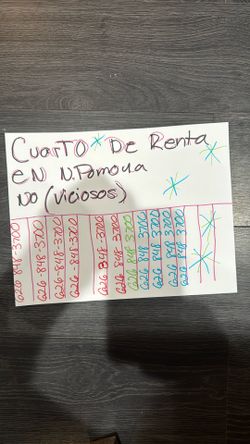 CuarTO De Renta
eN N.Pomona
NO (Viciosos)
626 848-3700
626-848-3700
626-848-3700
626-848-3700
626 848-3700
626 848-3700
626 848 3700
626 848 3700
626 848 3700
626 848 3700
626 848 3700